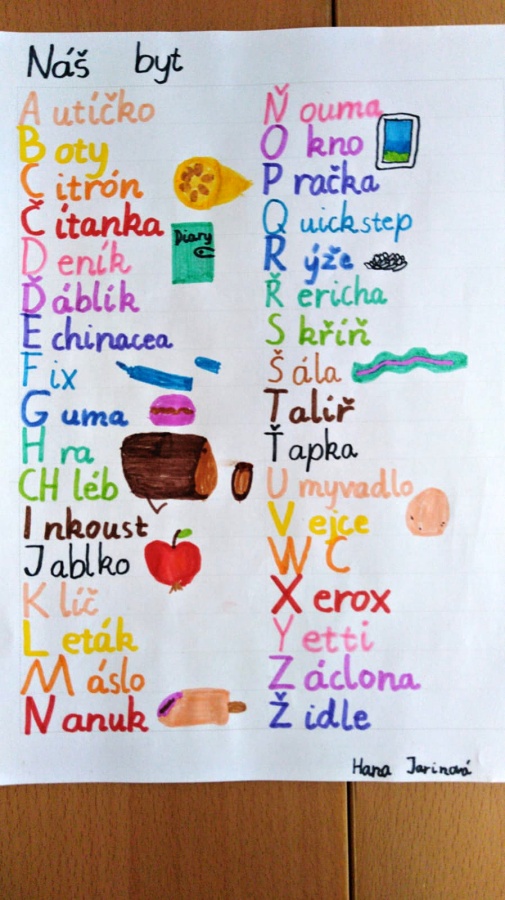 Náš byt
Autíčko
Boty
Citrón
Čítanka
Diary
Deník
Ďáblík
Echinacea
Fix
Guma
Hra
CHléb
Inkoust
Jablko
Klíč
Leták
Máslo
Nanuk
Ňouma
Okno
Pračka
Quickstep
Rýže
Řericha
Skříň
Šála
Talíř
Ťapka
Umyvadlo
Vejce
WC
Xerox
Yetti
Záclona
Židle
Hana Jarinová